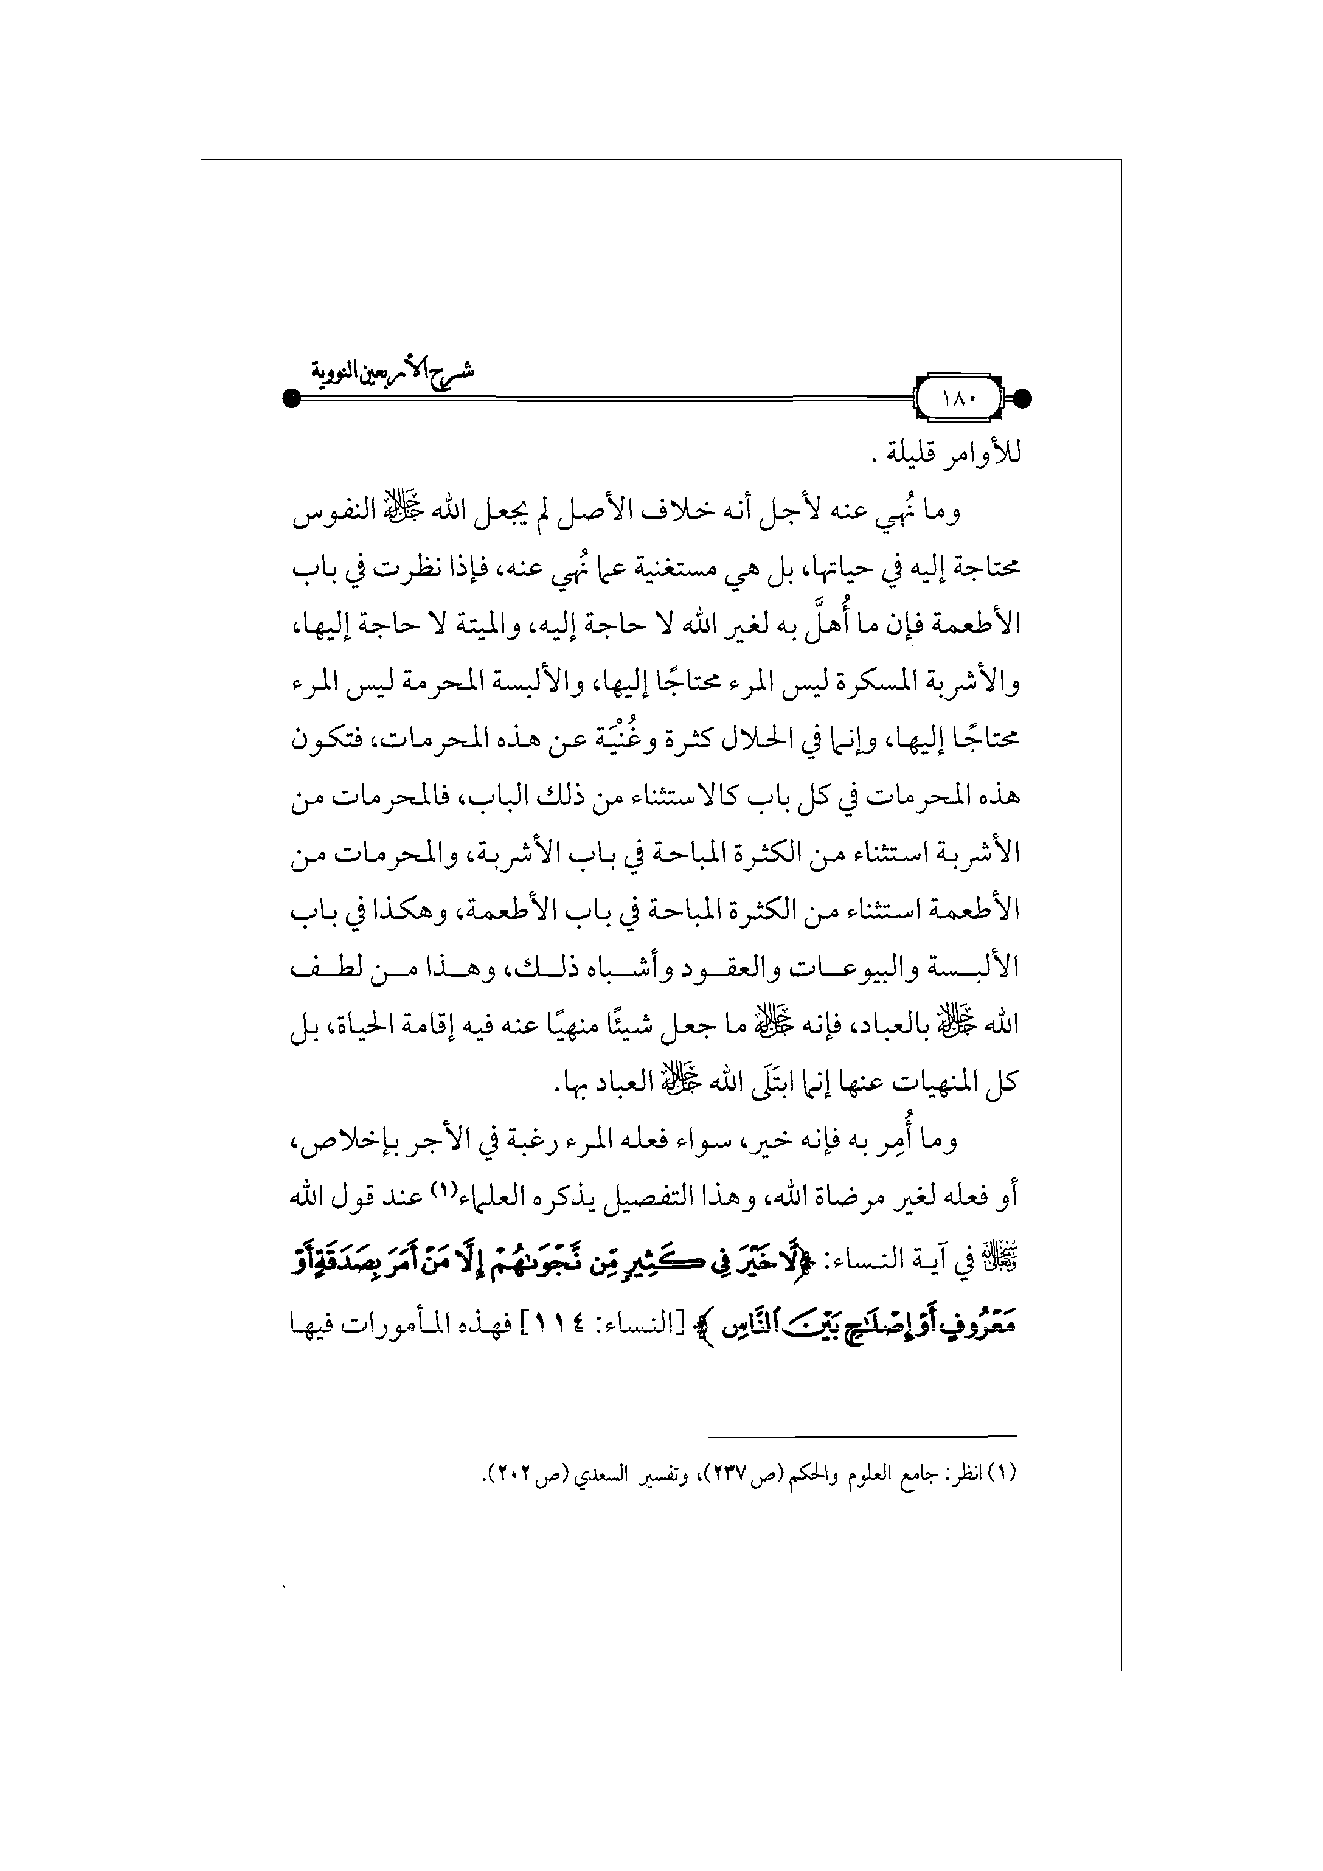 شرح الأربعين النووية
١٨٠
للأوامر قليلة .
وما نُهي عنه لأجل أنه خلاف الأصل لم يجعل الله ﷻ النفوس
محتاجة إليه في حياتها، بل هي مستغنية عما نُهي عنه، فإذا نظرت في باب
الأطعمة فإن ما أُهلَّ به لغير الله لا حاجة إليه، والميتة لا حاجة إليها،
والأشربة المسكرة ليس المرء محتاجًا إليها، والألبسة المحرمة ليس المرء
محتاجًا إليها، وإنما في الحلال كثرة وغُنْيَة عن هذه المحرمات، فتكون
هذه المحرمات في كل باب كالاستثناء من ذلك الباب، فالمحرمات من
الأشربة استثناء من الكثرة المباحة في باب الأشربة، والمحرمات من
الأطعمة استثناء من الكثرة المباحة في باب الأطعمة، وهكذا في باب
الألبسة والبيوعات والعقود وأشباه ذلك، وهذا من لطف
الله ﷻ بالعباد، فإنه ﷻ ما جعل شيئًا منهيًا عنه فيه إقامة الحياة، بل
كل المنهيات عنها إنما ابتَلَى الله ﷻ العباد بها.
وما أُمِر به فإنه خير، سواء فعله المرء رغبة في الأجر بإخلاص،
أو فعله لغير مرضاة الله، وهذا التفصيل يذكره العلماء(١) عند قول الله
في آية النساء: ﴿لَا خَيْرَ فِى كَثِيرٍ مِّن نَّجْوَىٰهُمْ إِلَّا مَنْ أَمَرَ بِصَدَقَةٍ أَوْ
مَعْرُوفٍ أَوْ إِصْلَـٰحٍ بَيْنَ ٱلنَّاسِ ﴾ [النساء: ١١٤] فهذه المأمورات فيها
(١) انظر: جامع العلوم والحكم (ص ٢٣٧)، وتفسير السعدي (ص ٢٠٢).